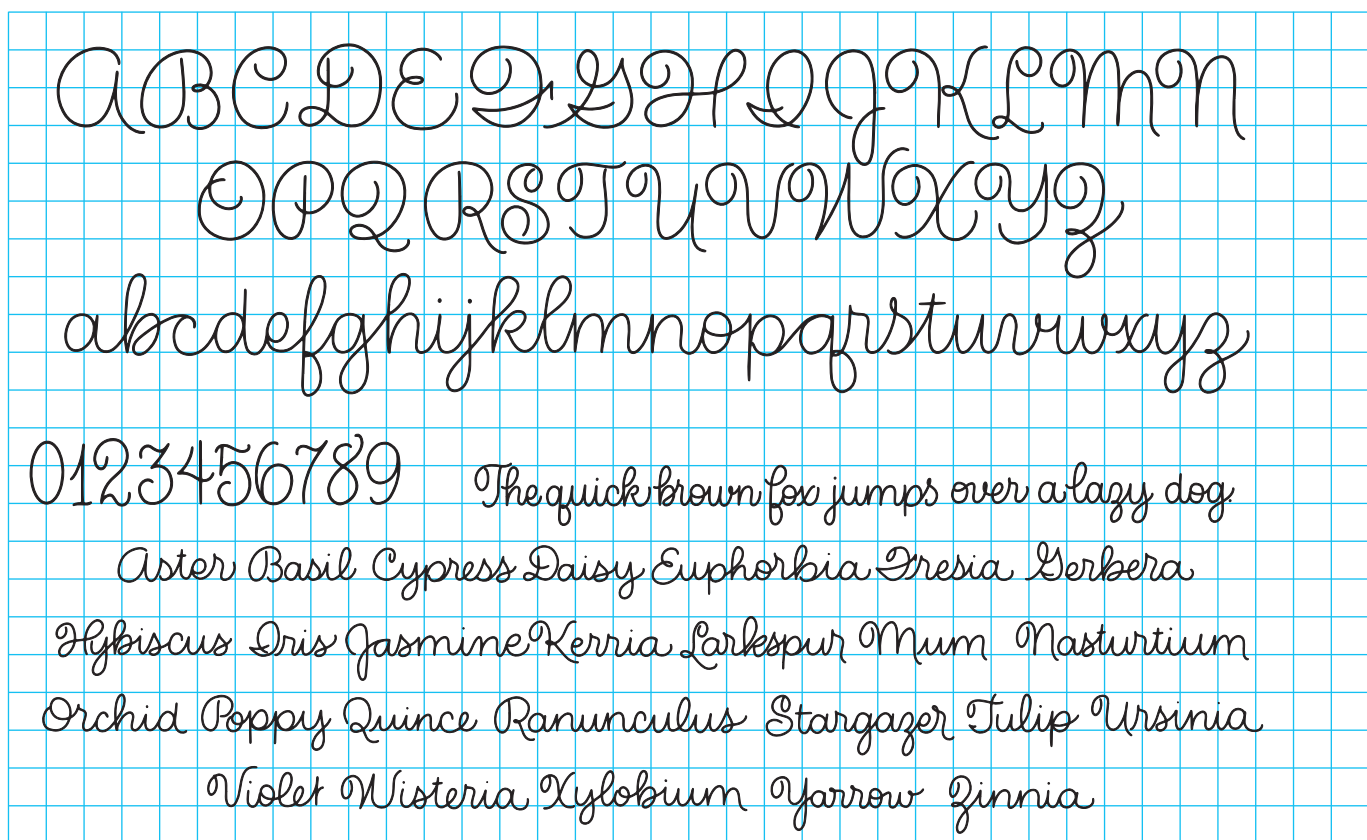 A B C D E F G H I J K L M N
O P Q R S T U V W X Y Z
abcdefghijklmnopqrstuvwxyz
0123456789 The quick brown fox jumps over a lazy dog.
Aster Basil Cypress Daisy Euphorbia Fresia Gerbera
Hybiscus Iris Jasmine Kerria Larkspur Mum Nasturtium
Orchid Poppy Quince Ranunculus Stargazer Tulip Ursinia
Violet Wisteria Xylobium Yarrow Zinnia